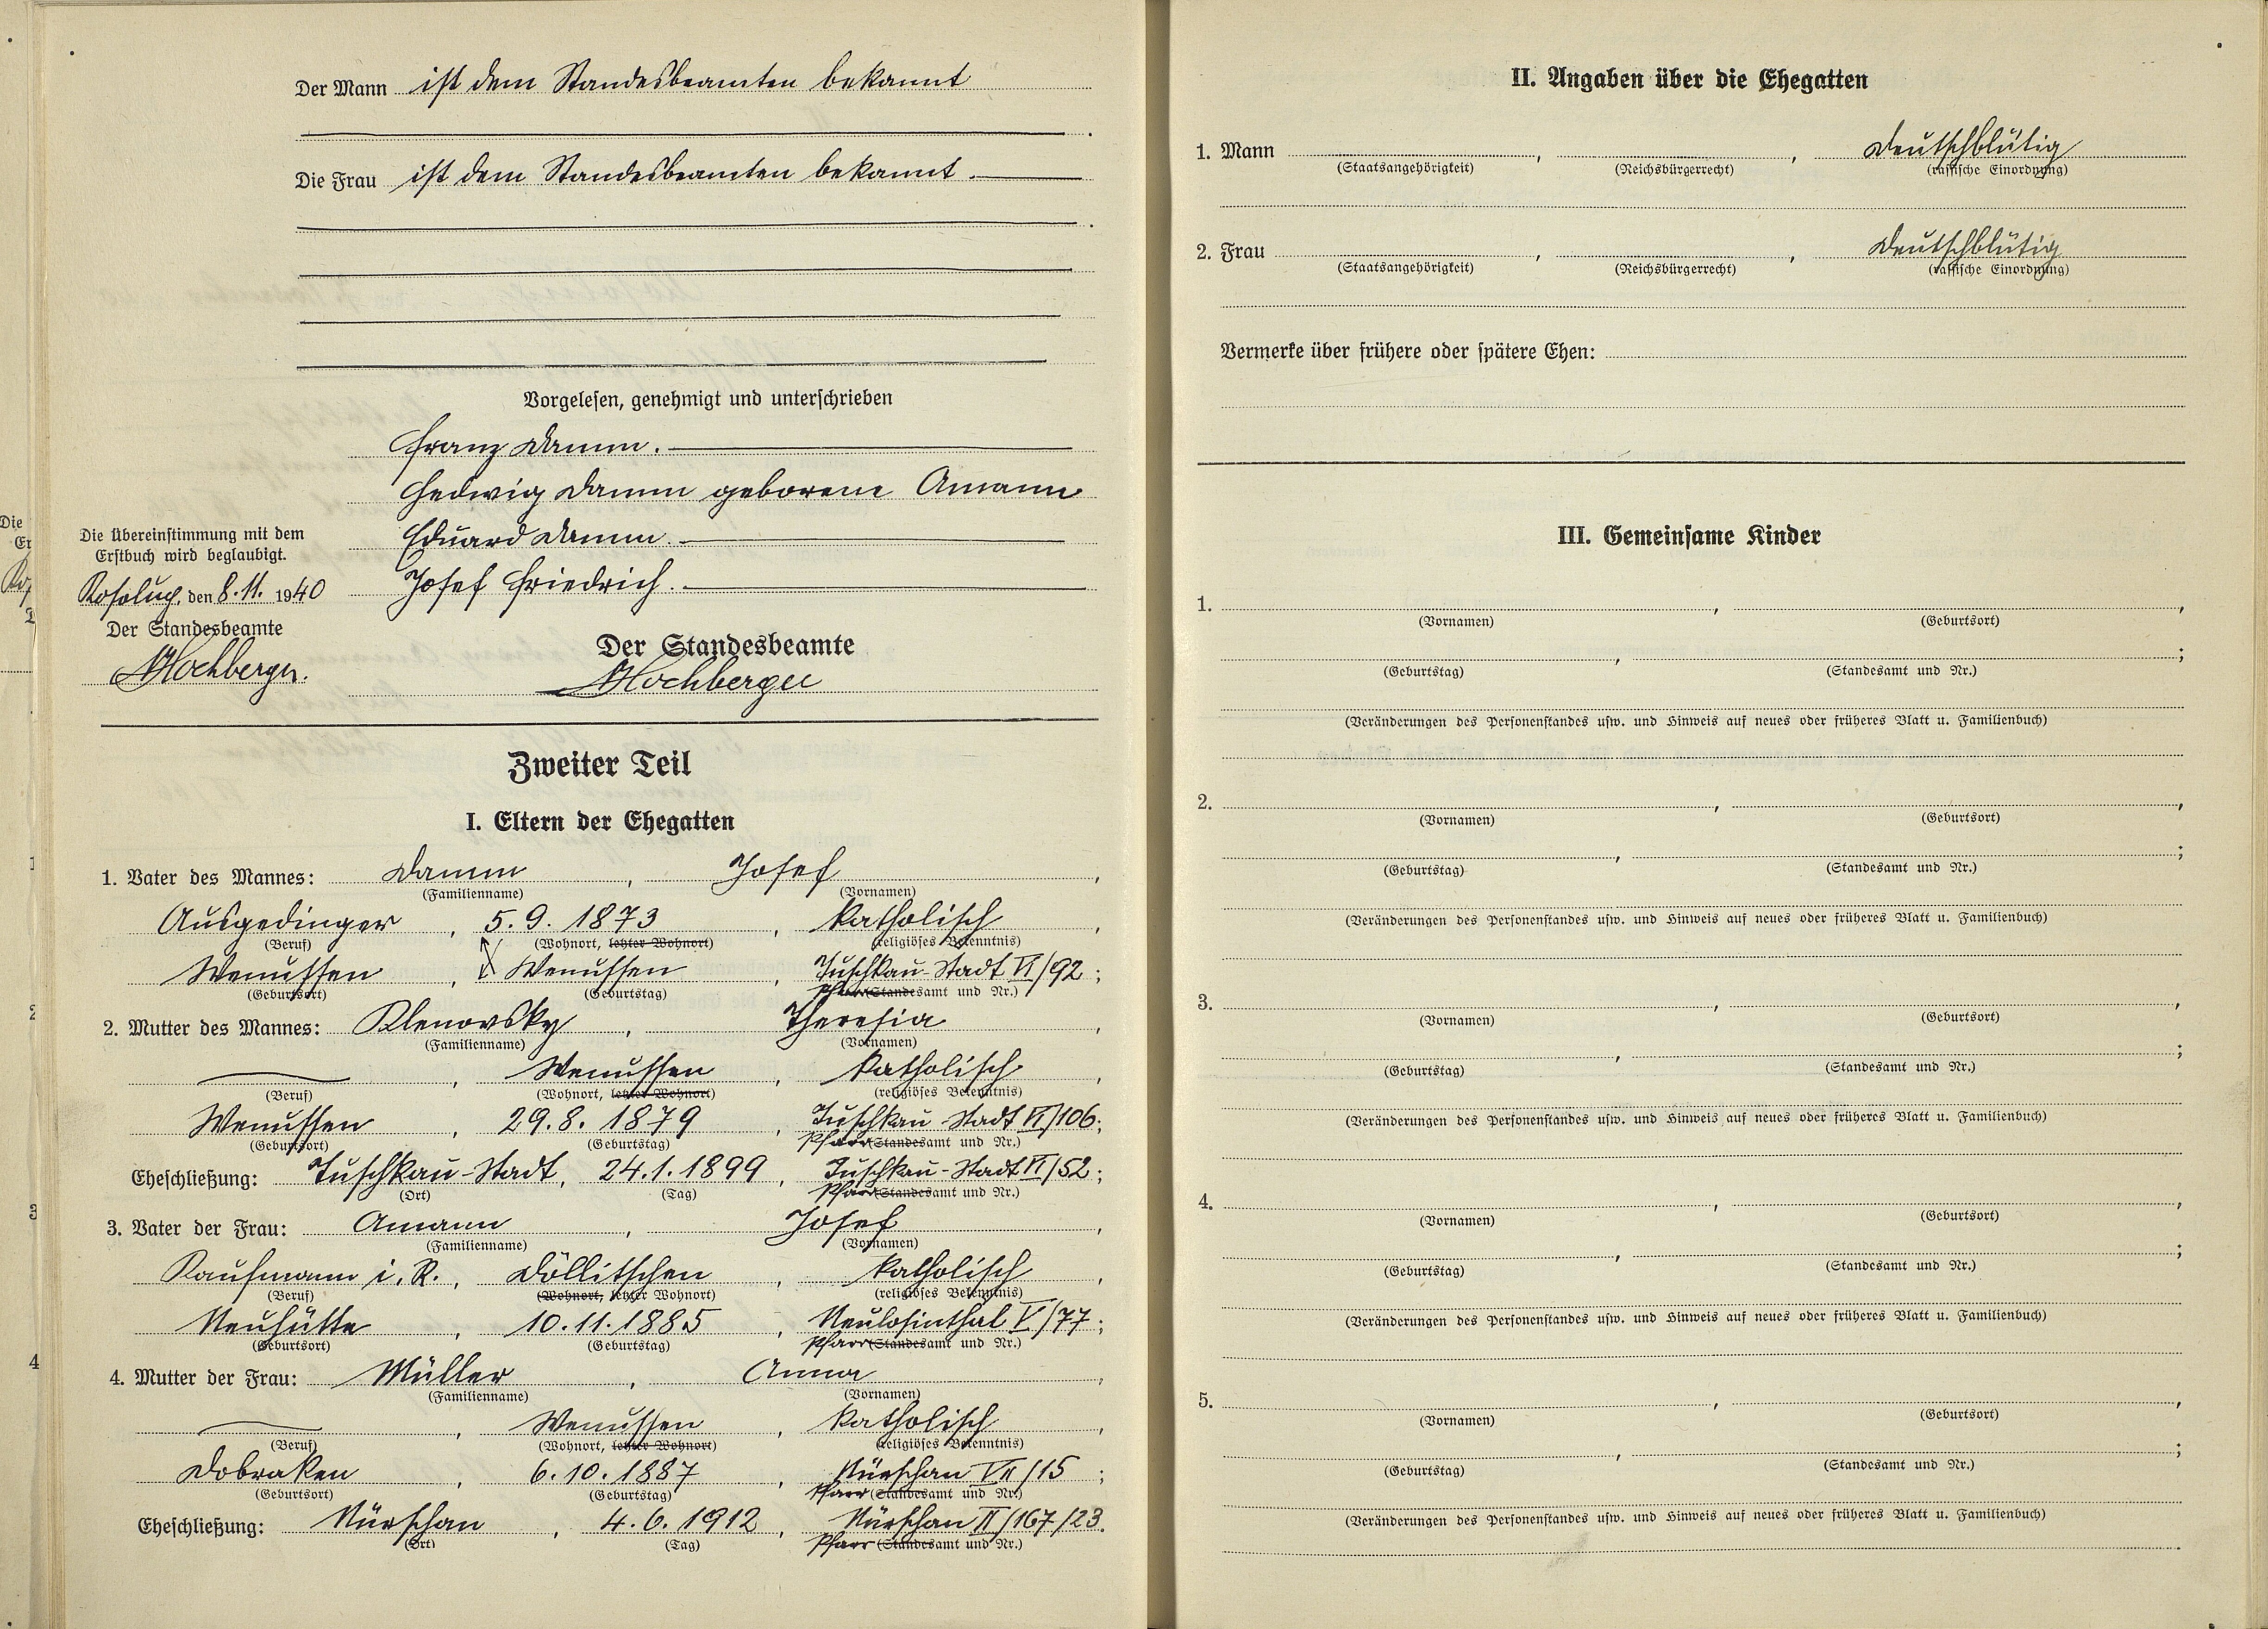 Der Mann ist dem Standesbeamten bekannt
Die Frau ist dem Standesbeamten bekannt.
Vorgelesen, genehmigt und unterschrieben
Franz Damm.
Hedwig Damm geborene Amann
Eduard Damm.
Josef Friedrich.
Die Übereinstimmung mit dem
Erstbuch wird beglaubigt.
den 8.11. 1940
Der Standesbeamte
Hochberger.
Der Standesbeamte
Hochberger
Zweiter Teil
I. Eltern der Ehegatten
1. Vater des Mannes: Damm, Josef,
(Familienname) (Vornamen)
Ausgedinger, 5.9. 1873, katholisch,
(Beruf) (Wohnort, letzter Wohnort) (religiöses Bekenntnis)
Wenussen, Wenussen, Tuschkau-Stadt VI/92;
(Geburtsort) (Geburtstag) Pfarr(Standesamt und Nr.)
2. Mutter des Mannes: Klenovsky, Theresia,
(Familienname) (Vornamen)
Wenussen, katholisch,
(Beruf) (Wohnort, letzter Wohnort) (religiöses Bekenntnis)
Wenussen, 29.8. 1879, Tuschkau-Stadt VI/106;
(Geburtsort) (Geburtstag) Pfarr(Standesamt und Nr.)
Eheschließung: Tuschkau-Stadt, 24.1.1899, Tuschkau-Stadt VI/52;
(Ort) (Tag) Pfarr(Standesamt und Nr.)
3. Vater der Frau: Amann, Josef,
(Familienname) (Vornamen)
Kaufmann i.R., Döllitschen, katholisch,
(Beruf) (Wohnort, letzter Wohnort) (religiöses Bekenntnis)
Neuhütte, 10.11.1885, Neulosinthal V/77;
(Geburtsort) (Geburtstag) Pfarr(Standesamt und Nr.)
4. Mutter der Frau: Müller, Anna,
(Familienname) (Vornamen)
Wenussen, katholisch,
(Beruf) (Wohnort, letzter Wohnort) (religiöses Bekenntnis)
Dobraken, 6.10.1887, Nürschan VII/15;
(Geburtsort) (Geburtstag) Pfarr(Standesamt und Nr.)
Eheschließung: Nürschan, 4.6.1912, Nürschan II/167/23.
(Ort) (Tag) Pfarr(Standesamt und Nr.)
II. Angaben über die Ehegatten
1. Mann , , Deutschblütig
(Staatsangehörigkeit) (Reichsbürgerrecht) (rassische Einordnung)
2. Frau , , Deutschblütig
(Staatsangehörigkeit) (Reichsbürgerrecht) (rassische Einordnung)
Vermerke über frühere oder spätere Ehen:
III. Gemeinsame Kinder
1. , ,
(Vornamen) (Geburtsort)
, ;
(Geburtstag) (Standesamt und Nr.)
(Veränderungen des Personenstandes usw. und Hinweis auf neues oder früheres Blatt u. Familienbuch)
2. , ,
(Vornamen) (Geburtsort)
, ;
(Geburtstag) (Standesamt und Nr.)
(Veränderungen des Personenstandes usw. und Hinweis auf neues oder früheres Blatt u. Familienbuch)
3. , ,
(Vornamen) (Geburtsort)
, ;
(Geburtstag) (Standesamt und Nr.)
(Veränderungen des Personenstandes usw. und Hinweis auf neues oder früheres Blatt u. Familienbuch)
4. , ,
(Vornamen) (Geburtsort)
, ;
(Geburtstag) (Standesamt und Nr.)
(Veränderungen des Personenstandes usw. und Hinweis auf neues oder früheres Blatt u. Familienbuch)
5. , ,
(Vornamen) (Geburtsort)
, ;
(Geburtstag) (Standesamt und Nr.)
(Veränderungen des Personenstandes usw. und Hinweis auf neues oder früheres Blatt u. Familienbuch)